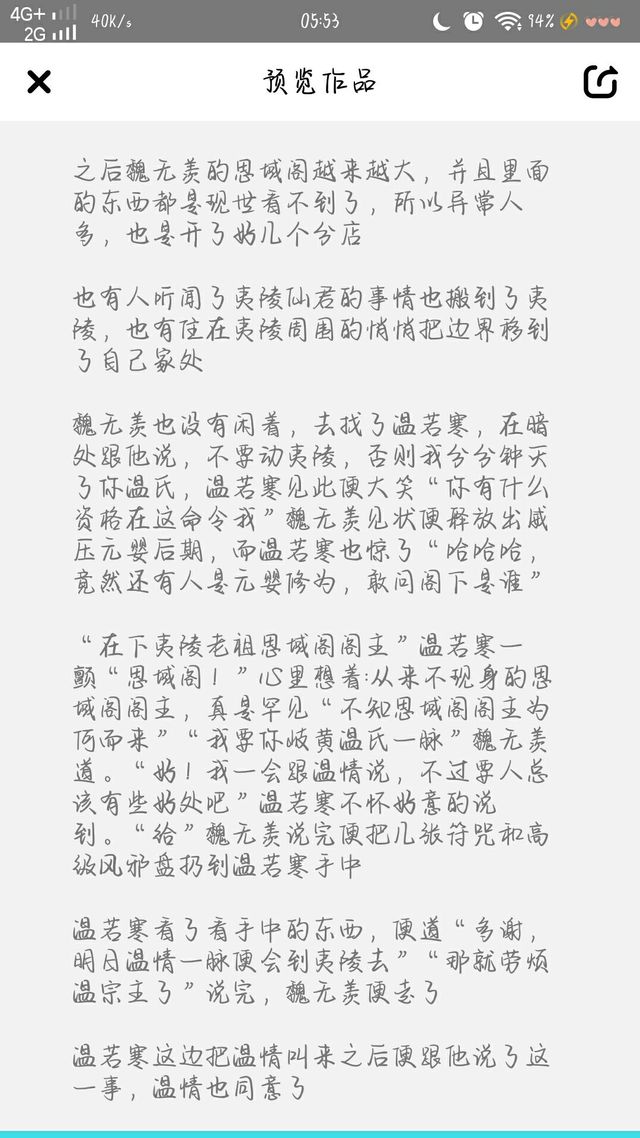 4G+ 2G 40K/s 05:53 94%
预览作品
之后魏无羡的思域阁越来越大，并且里面
的东西都是现世看不到了，所以异常人
多，也是开了好几个分店
也有人听闻了夷陵仙君的事情也搬到了夷
陵，也有住在夷陵周围的悄悄把边界移到
了自己家处
魏无羡也没有闲着，去找了温若寒，在暗
处跟他说，不要动夷陵，否则我分分钟灭
了你温氏，温若寒见此便大笑“你有什么
资格在这命令我”魏无羡见状便释放出威
压元婴后期，而温若寒也惊了“哈哈哈，
竟然还有人是元婴修为，敢问阁下是谁”
“在下夷陵老祖思域阁阁主”温若寒一
颤“思域阁！”心里想着:从来不现身的思
域阁阁主，真是罕见“不知思域阁阁主为
何而来”“我要你岐黄温氏一脉”魏无羡
道。“好！我一会跟温情说，不过要人总
该有些好处吧”温若寒不怀好意的说
到。“给”魏无羡说完便把几张符咒和高
级风邪盘扔到温若寒手中
温若寒看了看手中的东西，便道“多谢，
明日温情一脉便会到夷陵去”“那就劳烦
温宗主了”说完，魏无羡便走了
温若寒这边把温情叫来之后便跟他说了这
一事，温情也同意了